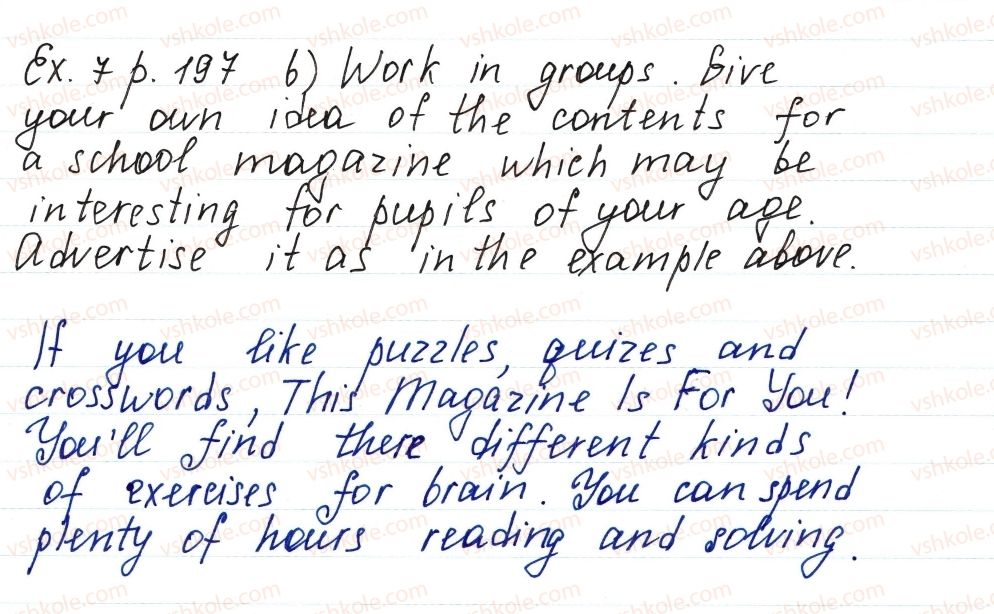 Ex. 7 p. 197 b) Work in groups. Give
your own idea of the contents for
a school magazine which may be
interesting for pupils of your age.
Advertise it as in the example above.
If you like puzzles, quizes and
crosswords, This Magazine Is For You!
You'll find there different kinds
of exercises for brain. You can spend
plenty of hours reading and solving.